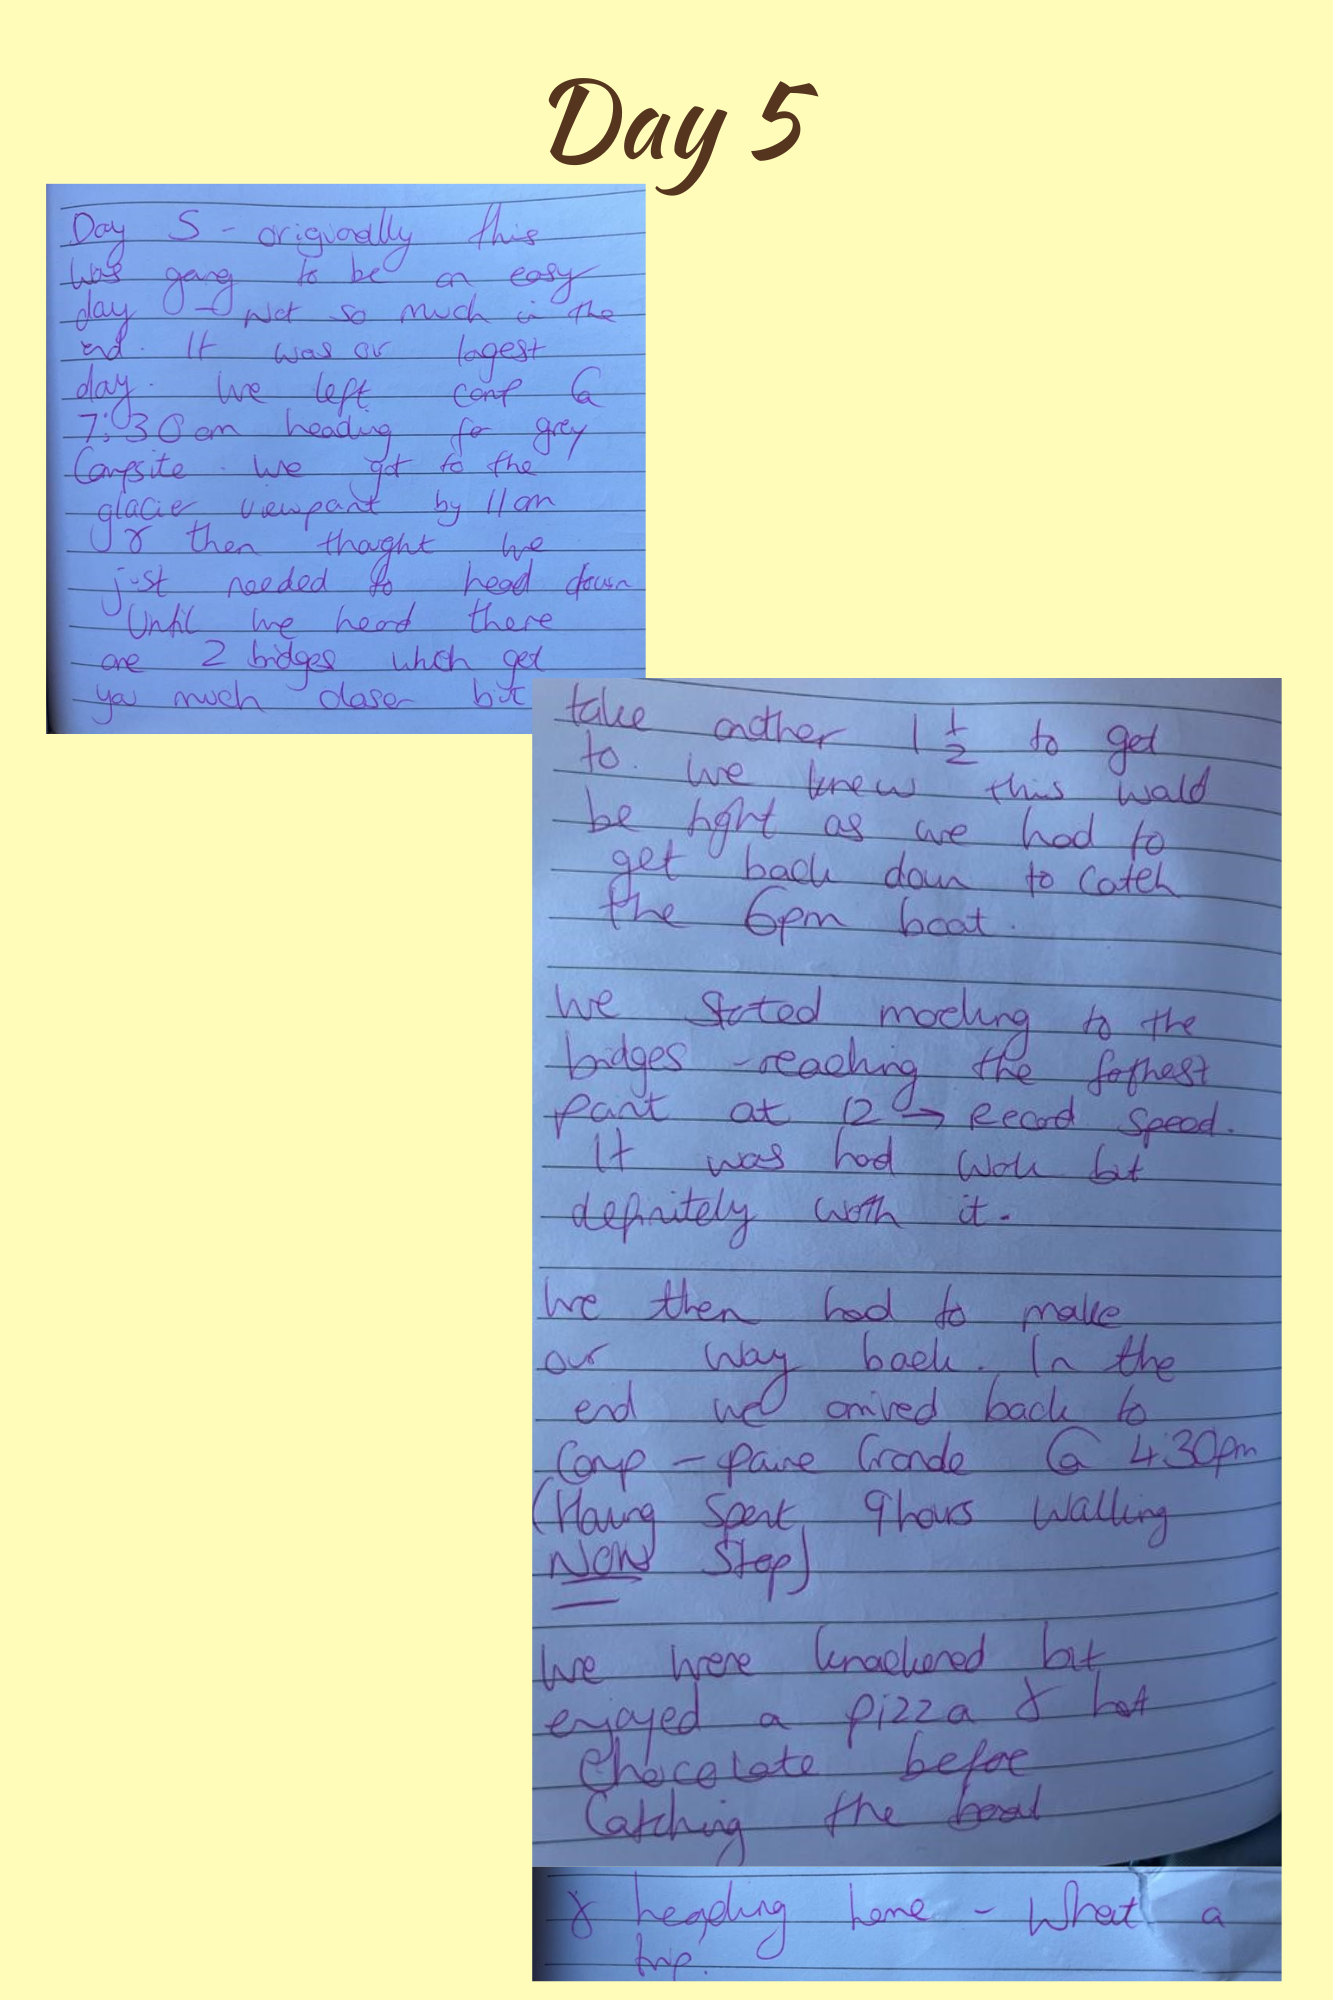 Day 5
Day 5 - originally this
was going to be an easy
day - Not so much in the
end. It was our longest
day. We left camp @
7:30am heading for grey
Campsite. We got to the
glacier viewpoint by 11am
& then thought we
just needed to head down
Until we heard there
are 2 bridges which get
you much closer but
take another 1 1/2 to get
to. We knew this would
be tight as we had to
get back down to catch
the 6pm boat.
We started mocking to the
bridges - reaching the furthest
point at 12 → Record Speed.
It was hard work but
definitely worth it.
We then had to make
our way back. In the
end we arrived back to
Camp - Paine Grande @ 4:30pm
(Having spent 9hours walking
NON Stop)
We were knackered but
enjoyed a pizza & hot
Chocolate before
Catching the boat
& heading home - What a
trip.